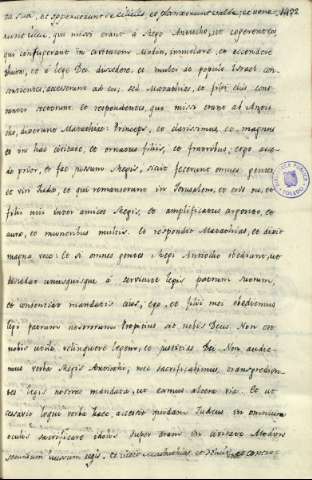 1472
sua, et operuerunt se ciliciis, et planxerunt valde. et vene-
runt illuc, qui missi erant á Rege Antiocho, ut cogerent eos,
qui confugerant in civitatem Modin, immolare, et accendere
thura, et á lege Dei discedere, et multi de populo Israel con-
sentientes, accesserunt ad eos; sed Matathias, et filii eius cons-
tanter steterunt. et respondentes, qui missi erant ab Antio-
cho, dixerunt Matathiæ: Princeps, et clarissimus, et magnus
es in hac civitate, et ornatus filiis, et fratribus, ergo acce-
de prior, et fac jussum Regis, sicut fecerunt omnes gentes
et viri Juda, et qui remanserunt in Jerusalem, et eris tu, et
filii tui inter amicos Regis, et amplificatus argento, et
auro, et muneribus multis. et respondit Matathias, et dixit
magna voce: et si omnes gentes Regi Antiocho obediunt, ut
discedat unusquisque á servitute legis patrum suorum,
et consentiat mandatis eius, ego, et filii mei obediemus
legi patrum nostrorum. Propitius sit nobis Deus. Non est
nobis utile, relinquere legem, et justitias Dei. Non audie-
mus verba Regis Antiochi, nec sacrificabimus, transgredien-
tes legis nostræ mandata, ut eamus altera via. et ut
cesavit loqui verba hæc, accessit quidam Judæus in omnium
oculis sacrificare idolis super aram in civitate Modin,
secundum jussum regis, et vidit Matathias, et